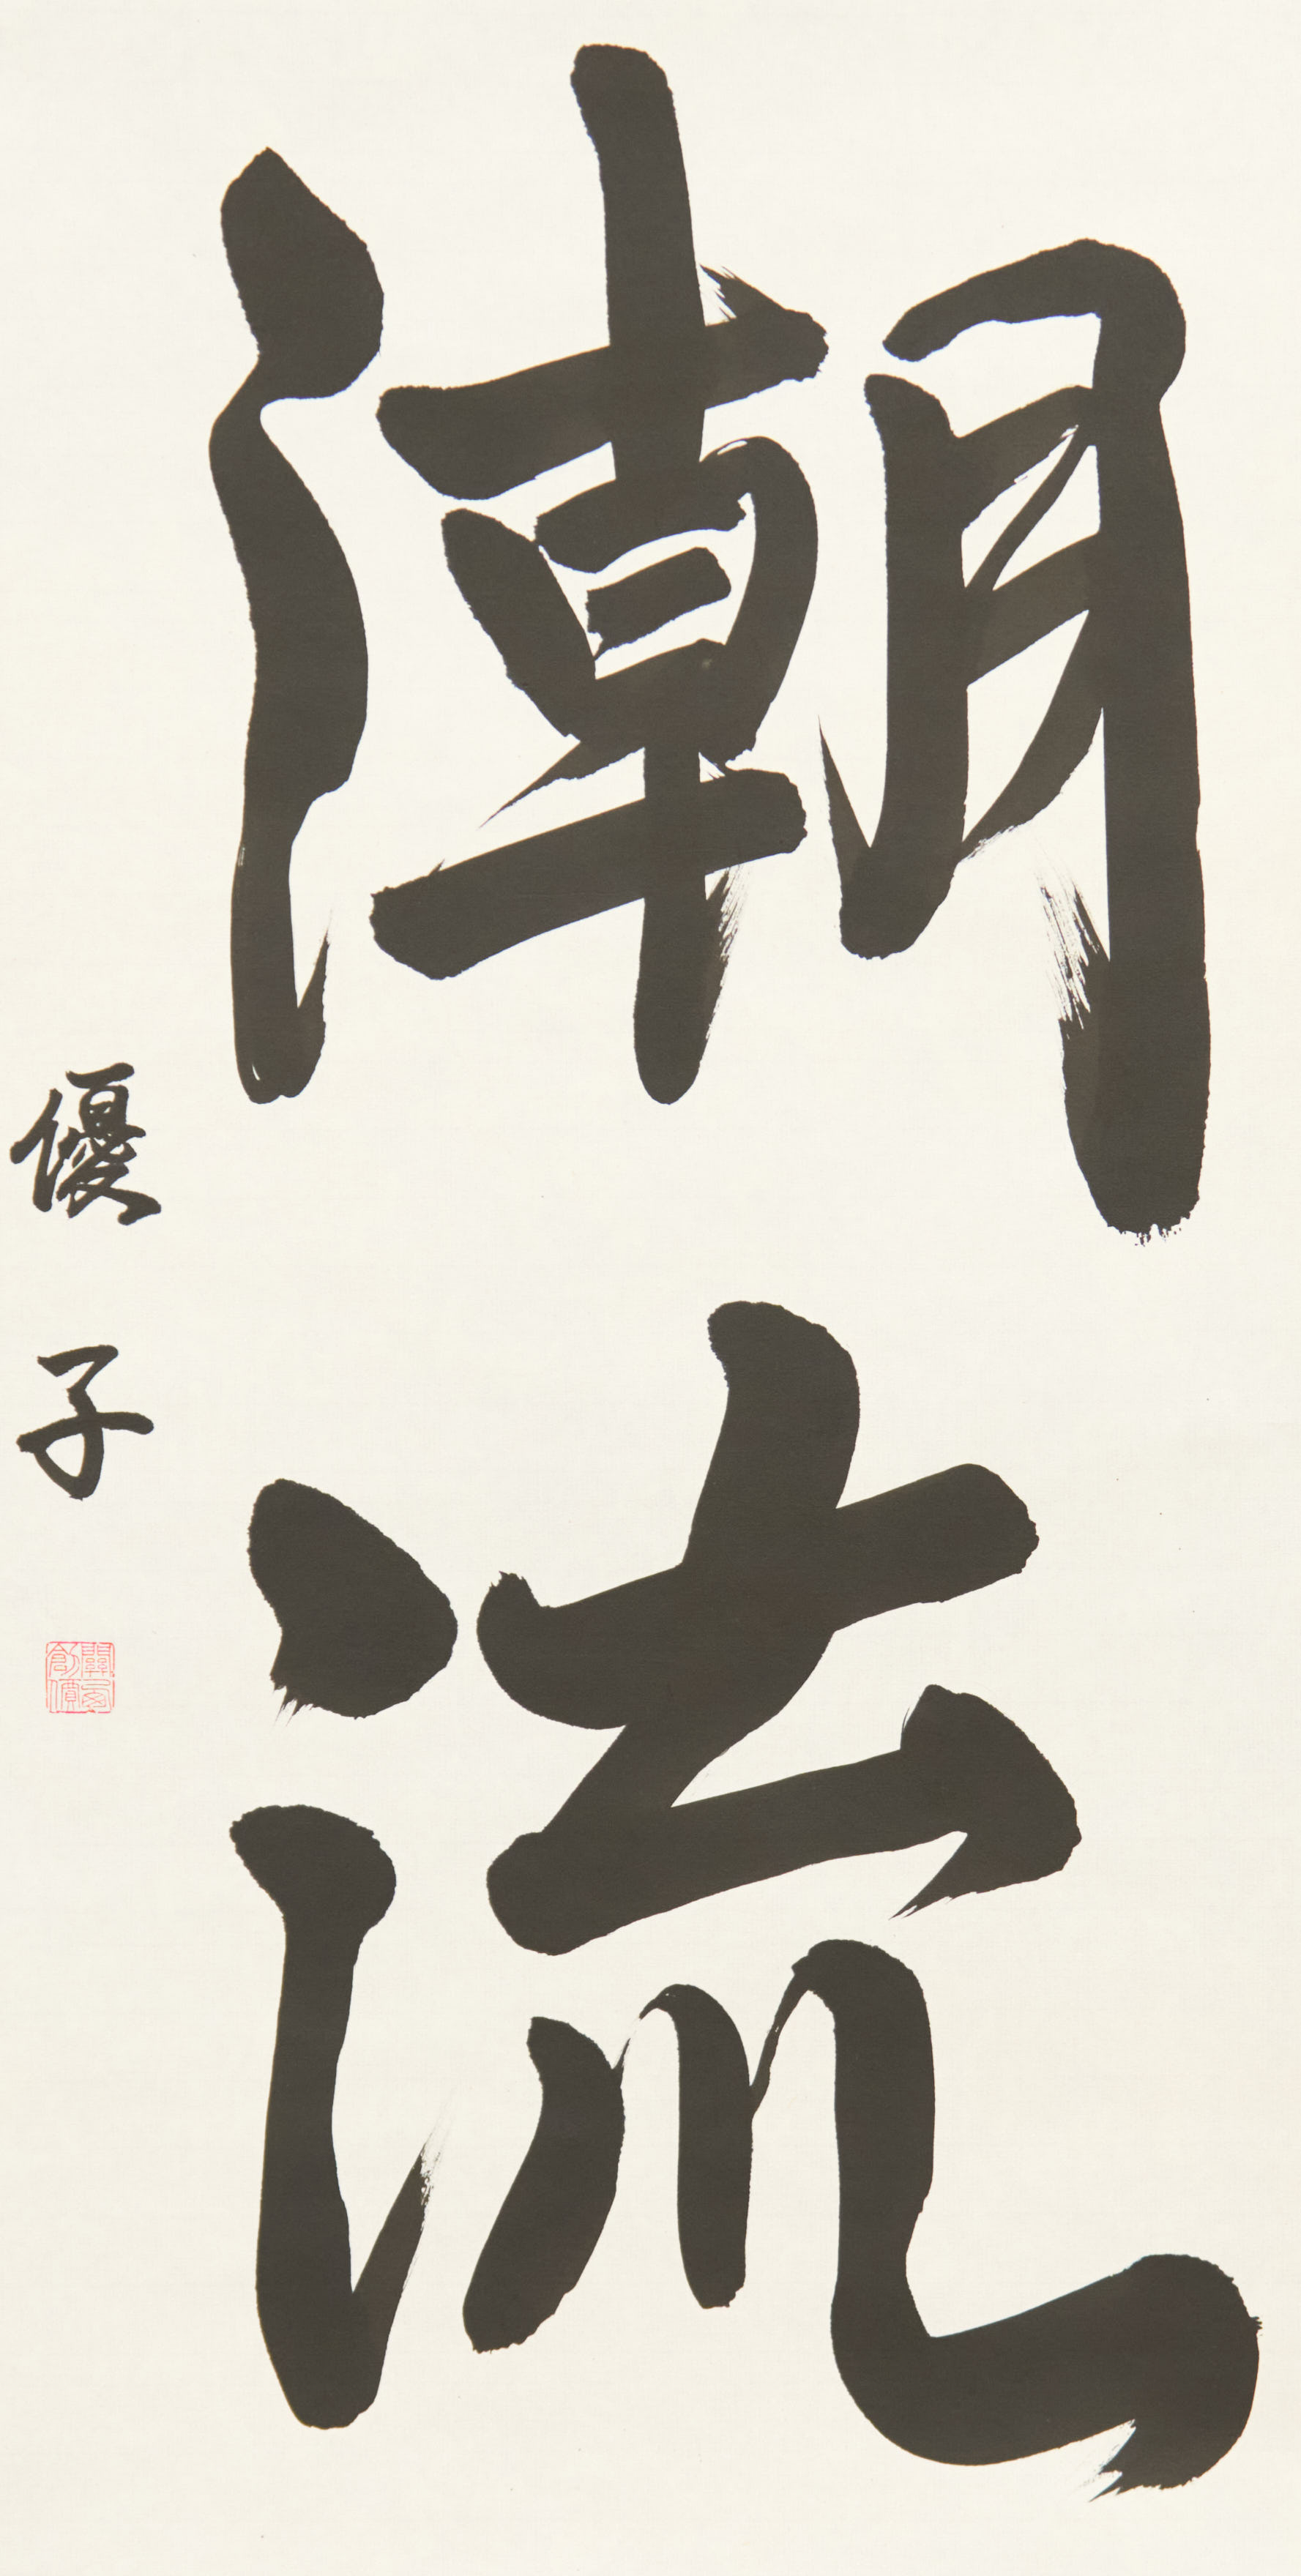 潮流
優子